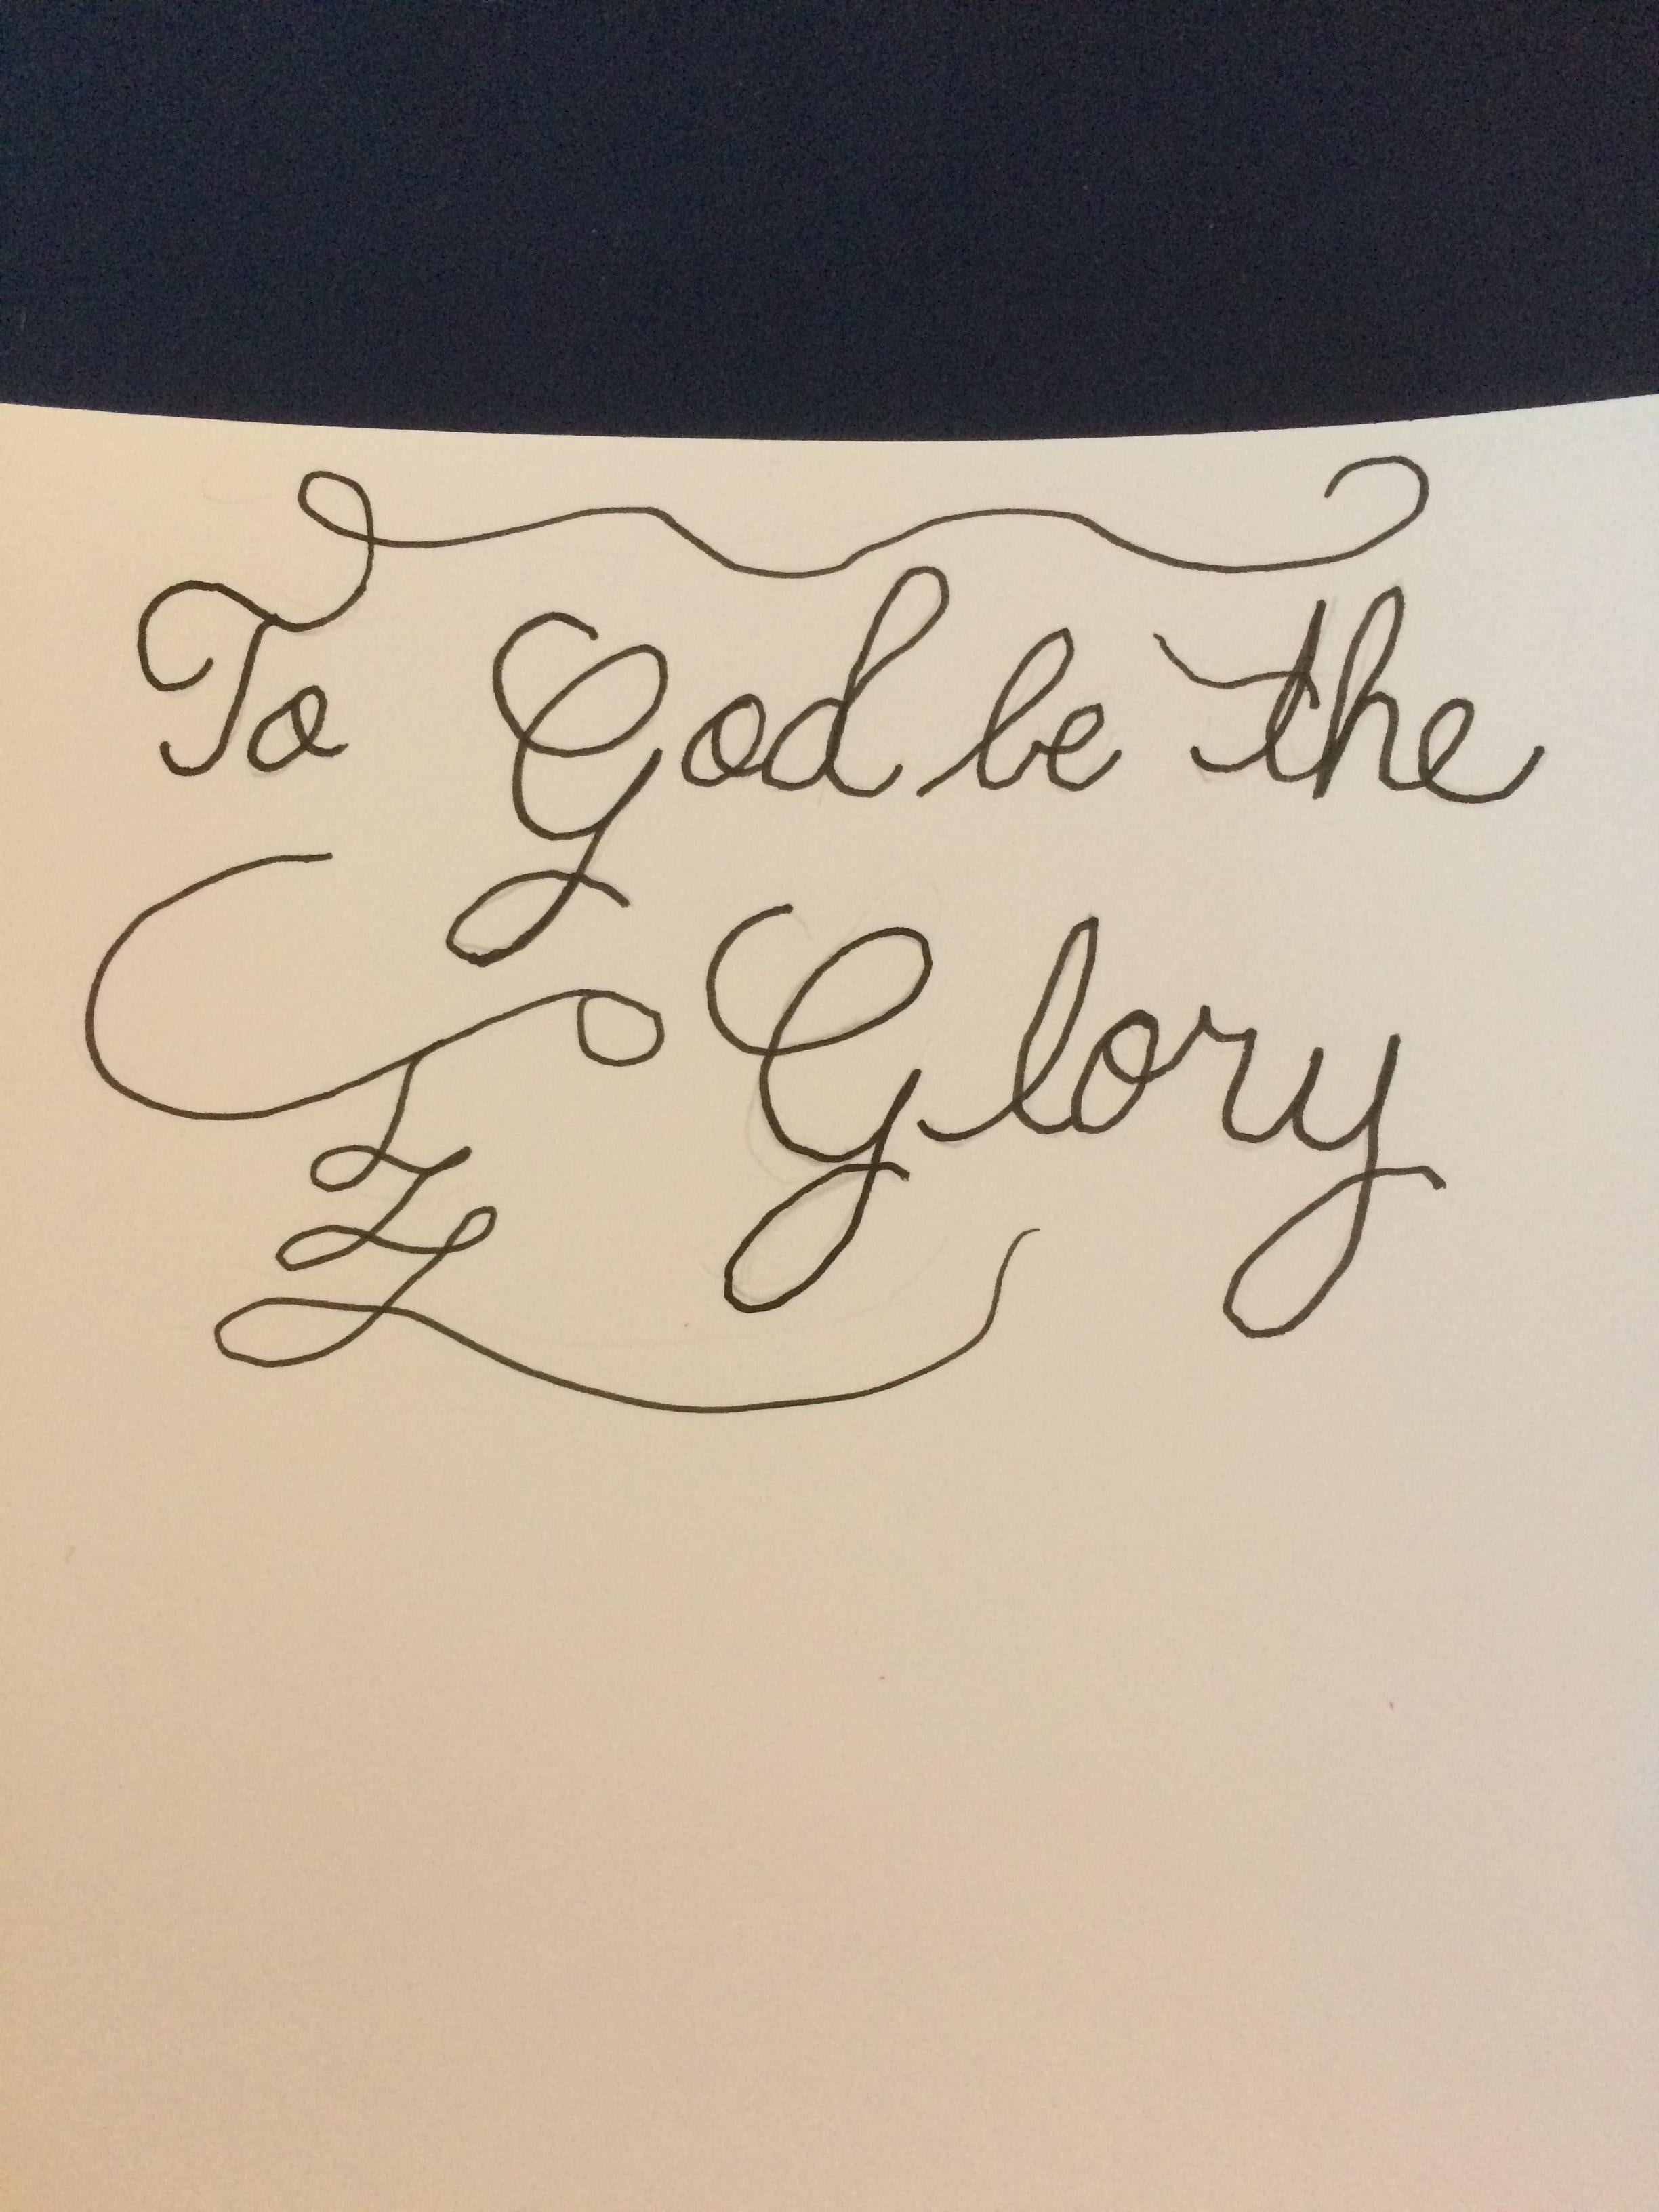 To God be the
Glory